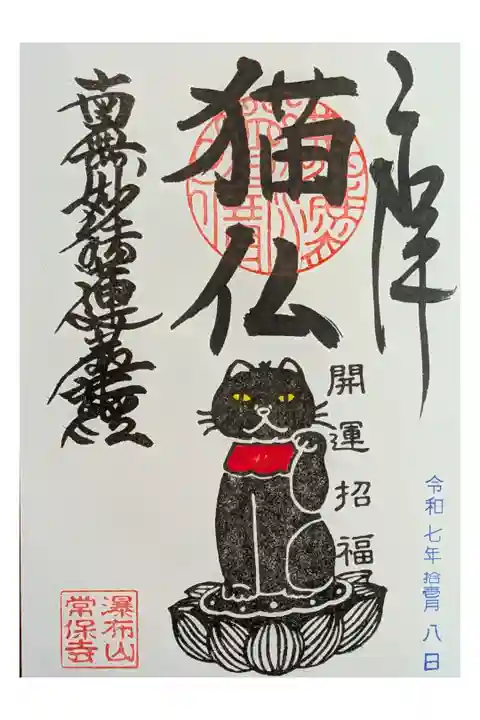 奉拝
令和七年拾壹月八日
猫仏
開運招福
南無妙法蓮華経
瀑布山
常保寺